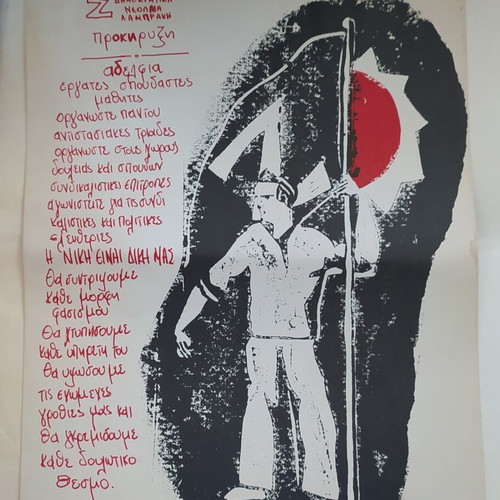 Ζ ΔΗΜΟΚΡΑΤΙΚΗ
ΝΕΟΛΑΙΑ
ΛΑΜΠΡΑΚΗ
προκηρυξη
αδελφια
εργατες σπουδαστες
μαθητες
οργανωστε παντου
αντιστασιακες τριαδες
οργανωστε στους χωρους
δουλειας και σπουδων
συνδικαλιστικες επιτροπες
αγωνιστειτε για τις συνδι
καλιστικες και πολιτικες
ελευθεριες
Η ΝΙΚΗ ΕΙΝΑΙ ΔΙΚΗ ΜΑΣ
θα συντριψουμε
καθε μορφη
φασισμου
θα χτυπησουμε
καθε υπηρετη του
θα υψωσουμε
τις ενωμενες
γροθιες μας και
θα γκρεμισουμε
καθε δουλωτικο
θεσμο.